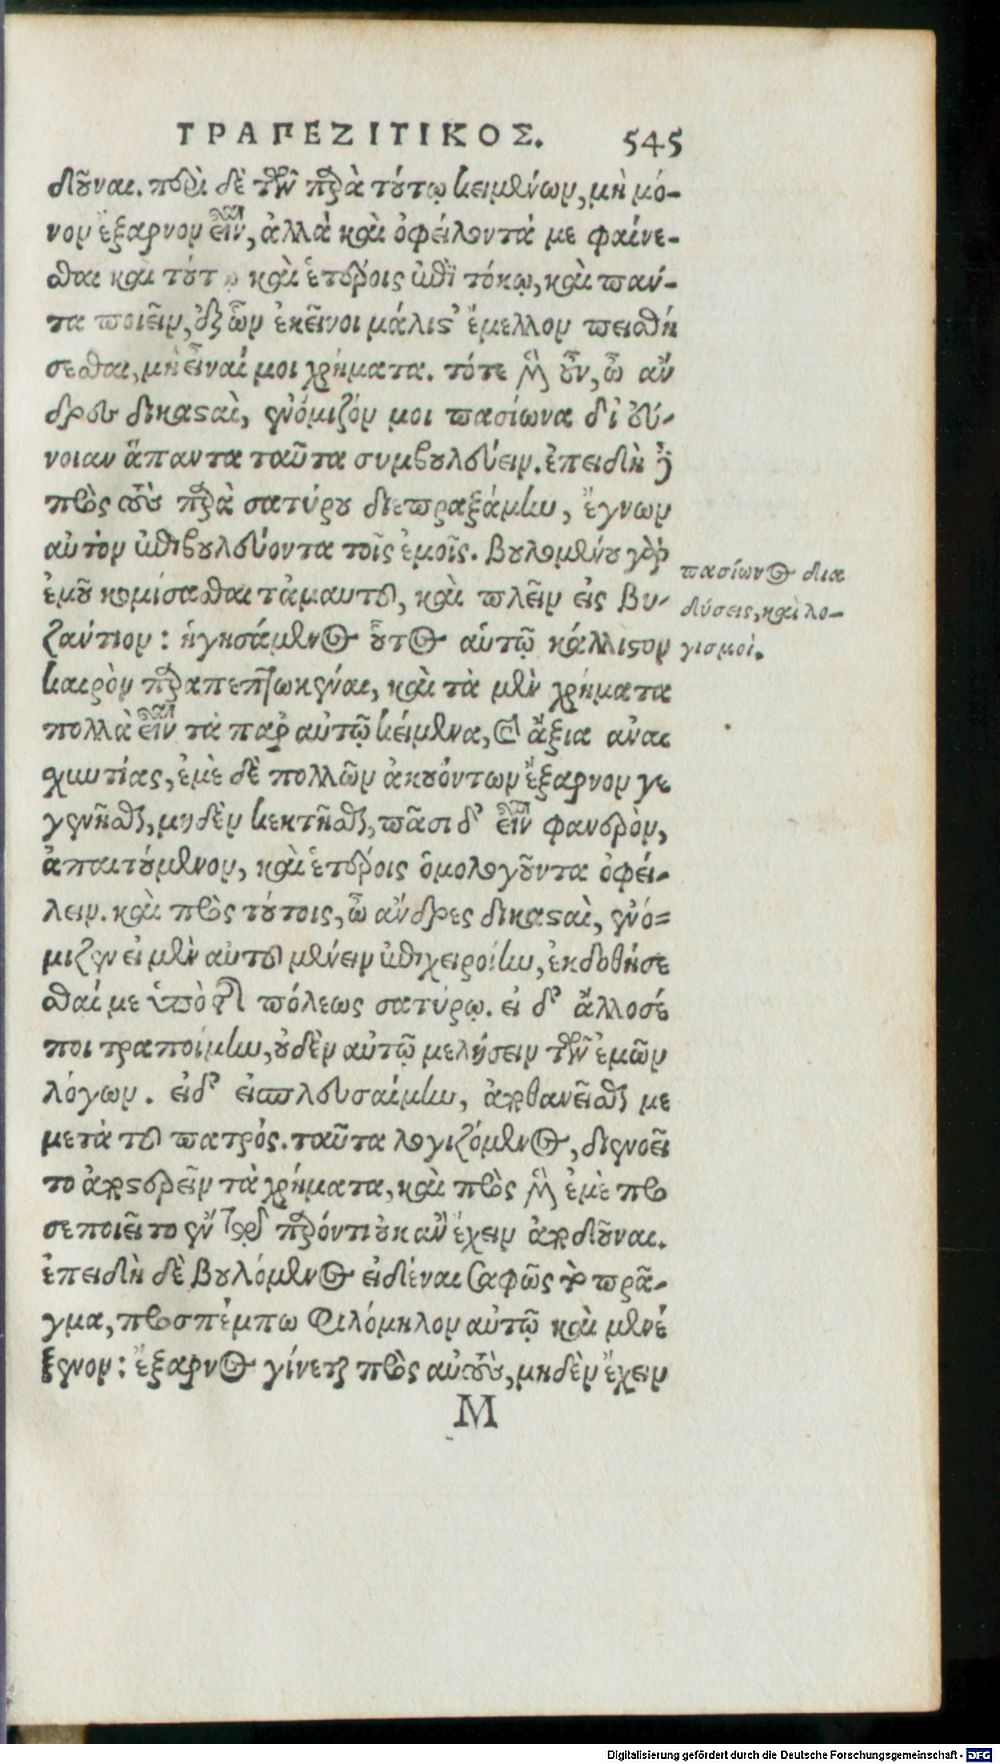 ΤΡΑΠΕΖΙΤΙΚΟΣ. 545
δοῦναι. περὶ δὲ τῶν παρὰ τούτῳ κειμένων, μὴ μό-
νον ἔξαρνον εἶναι, ἀλλὰ καὶ ὀφείλοντά με φαίνε-
σθαι καὶ τούτῳ καὶ ἑτέροις ἐπὶ τόκῳ, καὶ παν-
τα ποιεῖν, ἐξ ὧν ἐκεῖνοι μάλιστ' ἔμελλον πεισθή
σεσθαι, μὴ εἶναί μοι χρήματα. τότε μὲν οὖν, ὦ ἄν
δρες δικασταὶ, ἐνόμιζόν μοι πασίωνα δι' εὔ-
νοιαν ἅπαντα ταῦτα συμβουλεύειν. ἐπειδὴ δὲ
πρὸς τοὺς παρὰ σατύρου διεπραξάμην, ἔγνων
αὐτὸν ἐπιβουλεύοντα τοῖς ἐμοῖς. βουλομένου γὰρ
ἐμοῦ κομίσασθαι τἀμαυτοῦ, καὶ πλεῖν εἰς βυ-
ζάντιον: ἡγησάμενος οὗτος αὑτῷ κάλλιστον
καιρὸν παραπεπτωκέναι, καὶ τὰ μὲν χρήματα
πολλὰ εἶναι τὰ παρ' αὐτῷ κείμενα, καὶ ἄξια ἀναι
σχυντίας, ἐμὲ δὲ πολλῶν ἀκουόντων ἔξαρνον γε
γενῆσθαι, μηδὲν κεκτῆσθαι, πᾶσι δ' εἶναι φανερὸν,
ἀπαιτούμενον, καὶ ἑτέροις ὁμολογοῦντα ὀφεί-
λειν. καὶ πρὸς τούτοις, ὦ ἄνδρες δικασταὶ, ἐνό-
μιζεν εἰ μὲν αὐτοῦ μένειν ἐπιχειροίην, ἐκδοθήσε
σθαί με ὑπὸ τῆς πόλεως σατύρῳ. εἰ δ' ἄλλοσέ
ποι τραποίμην, οὐδὲν αὐτῷ μελήσειν τῶν ἐμῶν
λόγων. εἰ δ' εἰσπλευσαίμην, ἀποθανεῖσθαί με
μετὰ τοῦ πατρός. ταῦτα λογιζόμενος, διενοεῖ
το ἀποστερεῖν τὰ χρήματα, καὶ πρὸς μὲν ἐμὲ προ
σεποιεῖτο ἐν τῷ παρόντι οὐκ ἂν ἔχειν ἀποδοῦναι.
ἐπειδὴ δὲ βουλόμενος εἰδέναι σαφῶς τὸ πρᾶ-
γμα, προσπέμπω Φιλόμηλον αὐτῷ καὶ μενέ
ξενον: ἔξαρνος γίνεται πρὸς αὐτοὺς, μηδὲν ἔχειν
πασίωνος δια
λύσεις, καὶ λο-
γισμοί.
Μ
Digitalisierung gefördert durch die Deutsche Forschungsgemeinschaft - DFG